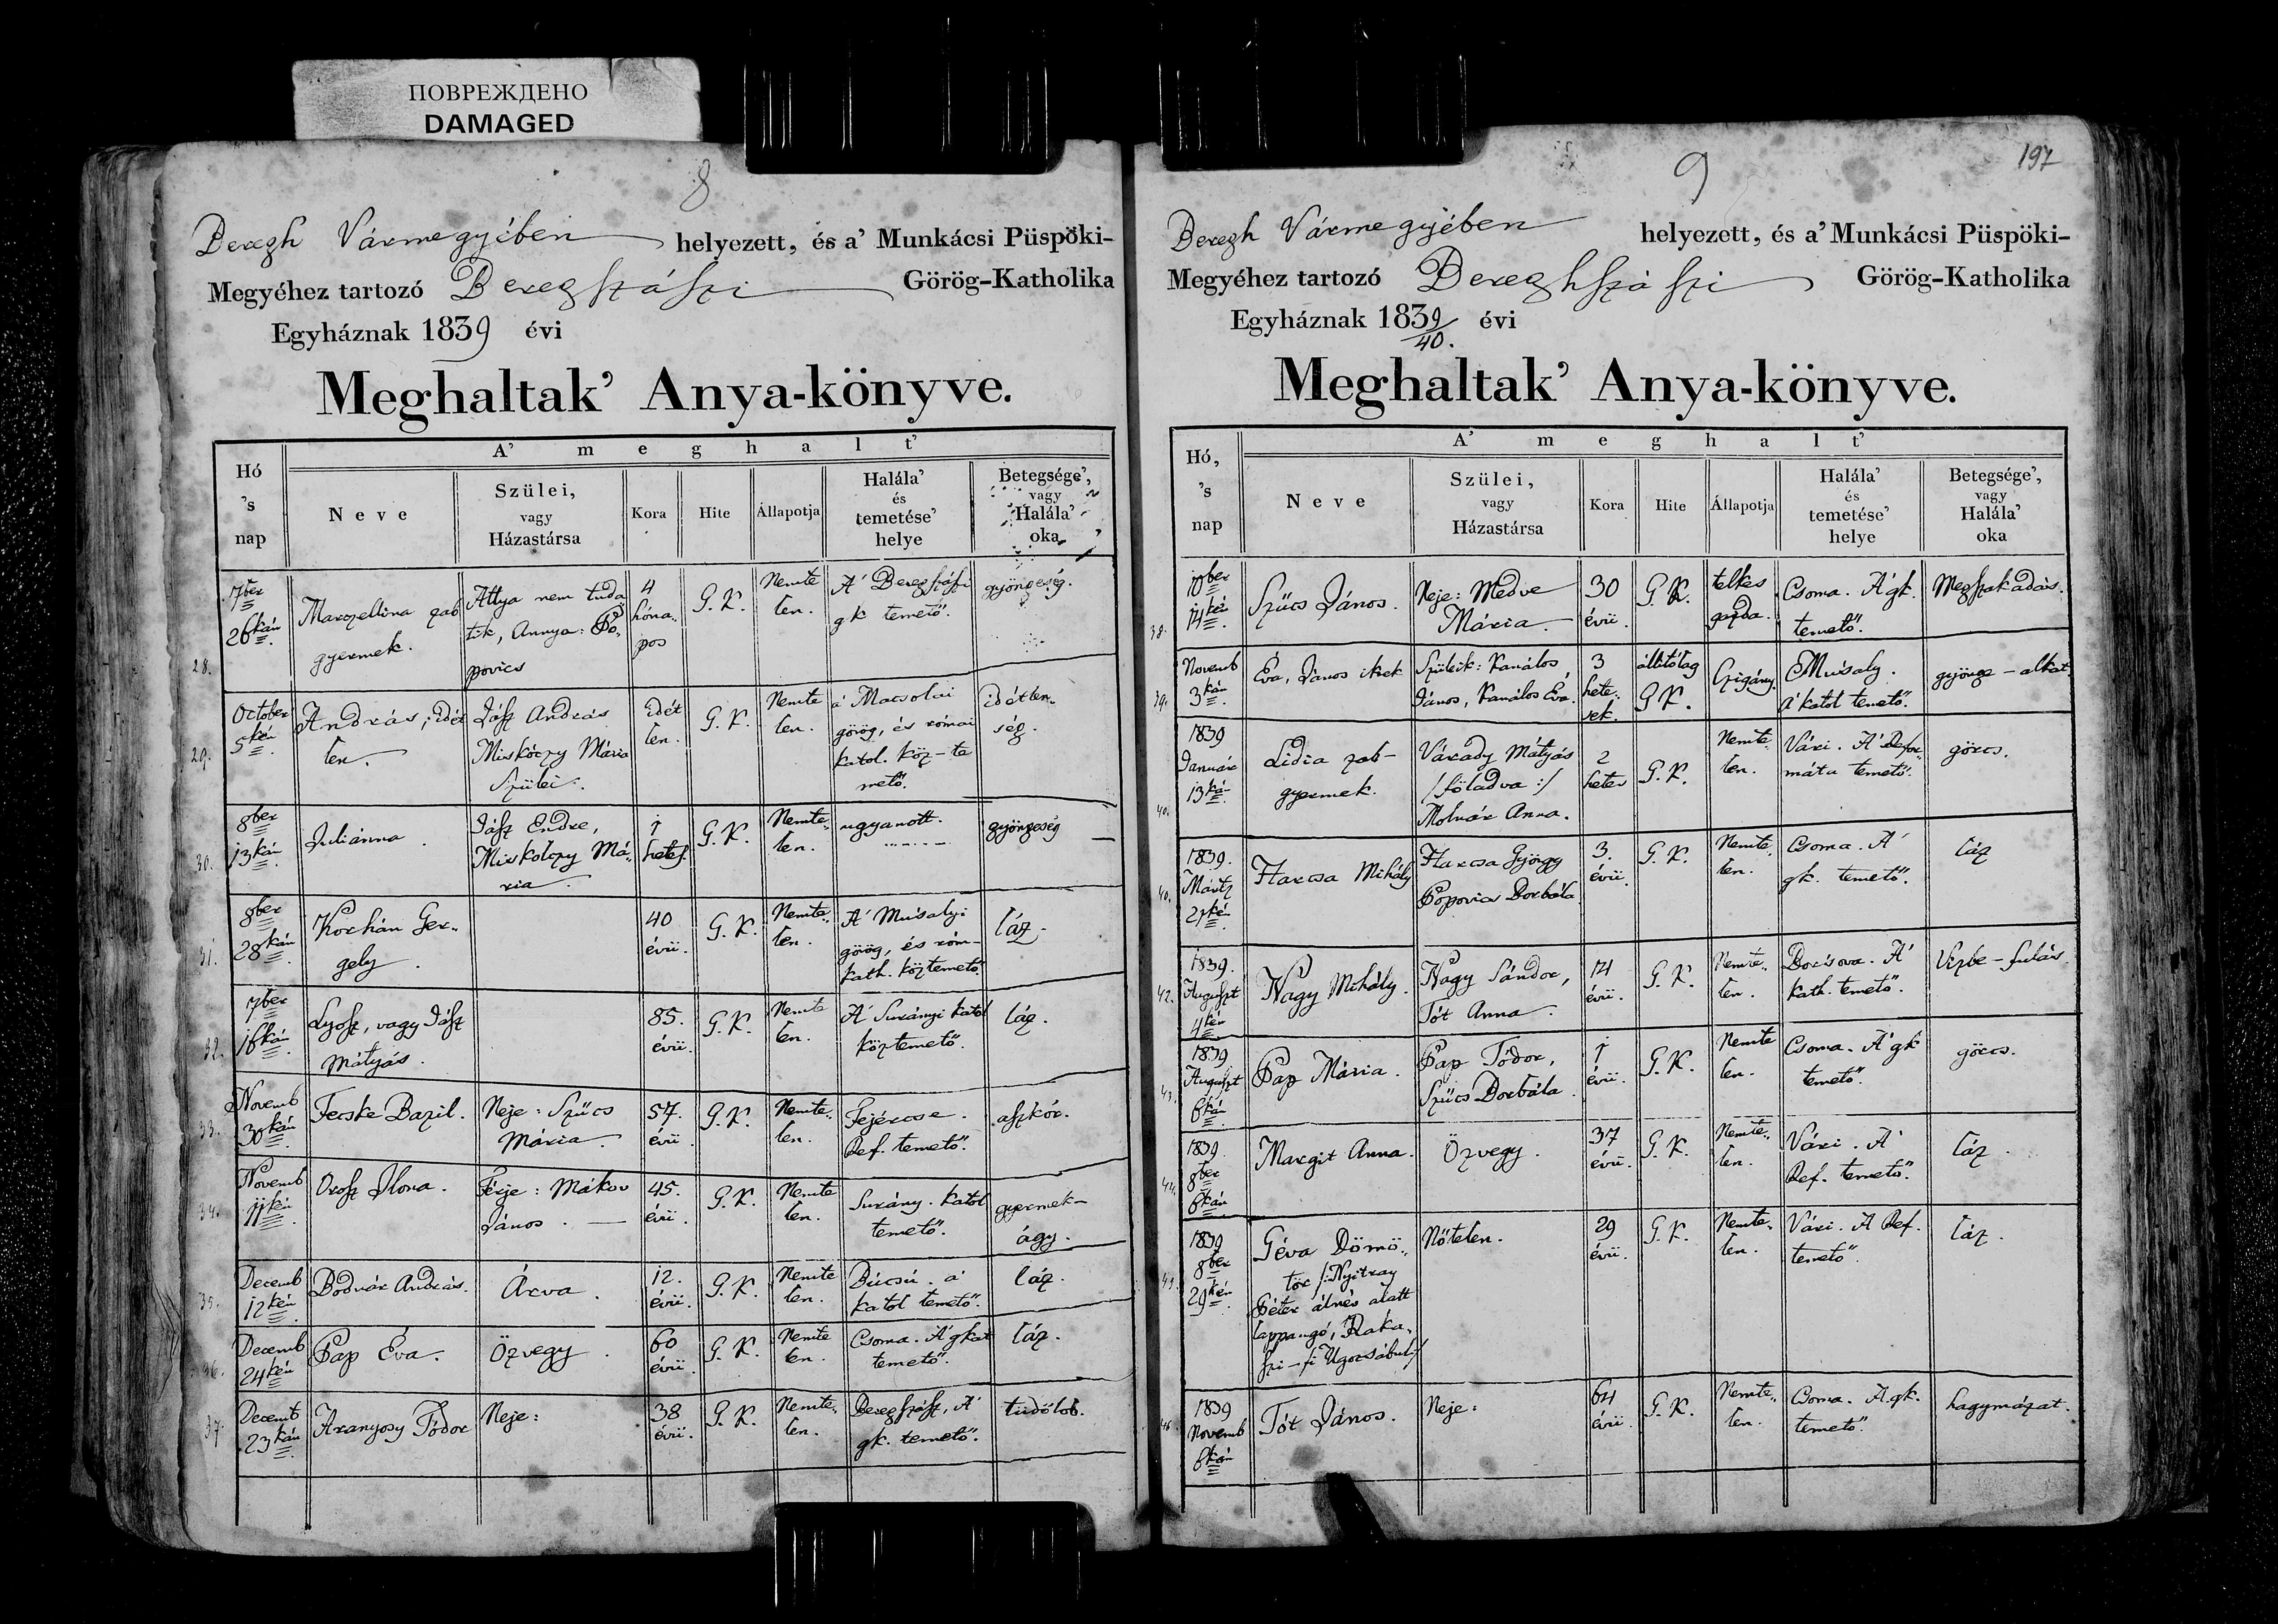 ПОВРЕЖДЕНО
DAMAGED
8
Beregh Vármegyében helyezett, és a' Munkácsi Püspöki-
Megyéhez tartozó Beregszászi Görög-Katholika
Egyháznak 1839 évi
Meghaltak' Anya-könyve.
A' meghalt'
Hó 's nap
Neve
Szülei, vagy Házastársa
Kora
Hite
Állapotja
Halála' és temetése' helye
Betegsége', vagy Halála' oka
28.
7ber 26kán
Marczellina zab
gyermek.
Attya nem tuda
tik, Annya: Po,
povics
4
hóna,
pos
G. K.
Nemte
len.
A' Beregszászi
gk temető.
gyöngeség.
29.
October 5kén
András, idét
len.
Jász András
Miskóczy Mária
Szülei.
idét
len.
G. K.
Nemte
len.
a' Macsolai
görög, és római
katol. köz-te
mető.
idétlen,
ség.
30.
8ber 13kán
Juliánna.
Jász Endre,
Miskolczy Má,
ria.
1
hetes.
G. K.
Nemte,
len.
ugyanott.
gyöngeség
31.
8ber 28kán
Korhán Ger,
gely.
40
évü.
G. K.
Nemte,
len.
A' Músalyi
görög, és róm-
kath. köztemető.
láz.
32.
7ber 16kán
Lyosz, vagy Jász
Mátyás.
85.
évü.
G. K.
Nemte
len.
A' Surányi katol
köztemető.
láz.
33.
Novemb 30kán
Fecske Bazil.
Neje: Szűcs
Mária.
57.
évü
G. K.
Nemte,
len.
Fejércse.
Ref. temető.
aszkór.
34.
Novemb 11kén
Orosz Ilona.
Férje: Mákov
János.
45.
évü.
G. K.
Nemte
len.
Surány. katol
temető.
gyermek-
ágy.
35.
Decemb 12kén
Bodnár András.
Árva.
12.
évü.
G. K.
Nemte
len.
Búcsú. a'
katol temető.
láz.
36.
Decemb 24kén
Pap Éva.
Özvegy.
60
évü.
G. K.
Nemte
len.
Csoma. A' gkat
temető.
láz.
37.
Decemb 23kán
Aranyosy Tódor
Neje:
38
évü.
G. K.
Nemte,
len.
Beregszász, A'
gk. temető.
tüdőlob.
9
197
Beregh Vármegyében helyezett, és a' Munkácsi Püspöki-
Megyéhez tartozó Bereghszászi Görög-Katholika
Egyháznak 1839/40. évi
Meghaltak' Anya-könyve.
A' meghalt'
Hó, 's nap
Neve
Szülei, vagy Házastársa
Kora
Hite
Állapotja
Halála' és temetése' helye
Betegsége', vagy Halála' oka
38.
10ber 14kén
Szűcs János.
Neje: Medve
Mária.
30
évü.
G. K.
telkes
gazda.
Csoma. A' gk.
temető.
Megszakadás.
39.
Novemb 3kán
Éva, János ikrek
Szüleik: Kanálos
János, Kanálos Éva.
3
hete,
sek.
állitólag
G K.
Czigány.
Músaly.
a' katol temető.
gyönge-alkat
40.
1839 Január 13kán
Lidia zab-
gyermek.
Várady Mátyás
/földova:/
Molnár Anna.
2
hetes
G. K.
Nemte,
len.
Vári. A' Refor,
mátu temető.
görcs.
40.
1839. Mártz 21kén
Harcsa Mihály
Harcsa György
Popovics Borbála
3.
évü.
G. K.
Nemte,
len.
Csoma. A'
gk. temető.
láz
42.
1839. Auguszt 4kén
Nagy Mihály.
Nagy Sándor,
Tót Anna.
14
évü.
G. K.
Nemte,
len.
Borsova. A'
kath. temető.
Vizbe-fulás.
43.
1839 Auguszt 6kán
Pap Mária.
Pap Tódor,
Szűcs Borbála.
1
évü.
G. K.
Nemte
len.
Csoma. A' gk
temető.
görcs.
44.
1839. 8ber 6kán
Margit Anna.
Özvegy.
37
évü.
G. K.
Nemte,
len.
Vári. A'
Ref. temető.
láz.
1839 8ber 29kén
Géva Dömö,
tör /:Nyitray
Péter álnév alatt
lappangó, Raka,
szi-fi Ugocsábul:/
Nőtelen.
29
évü.
G. K.
Nemte,
len.
Vári. A' Ref.
temető.
láz.
46.
1839 Novemb 6kán
Tót János.
Neje:
64
évü.
G. K.
Nemte,
len.
Csoma. A' gk.
temető.
hagymázat.